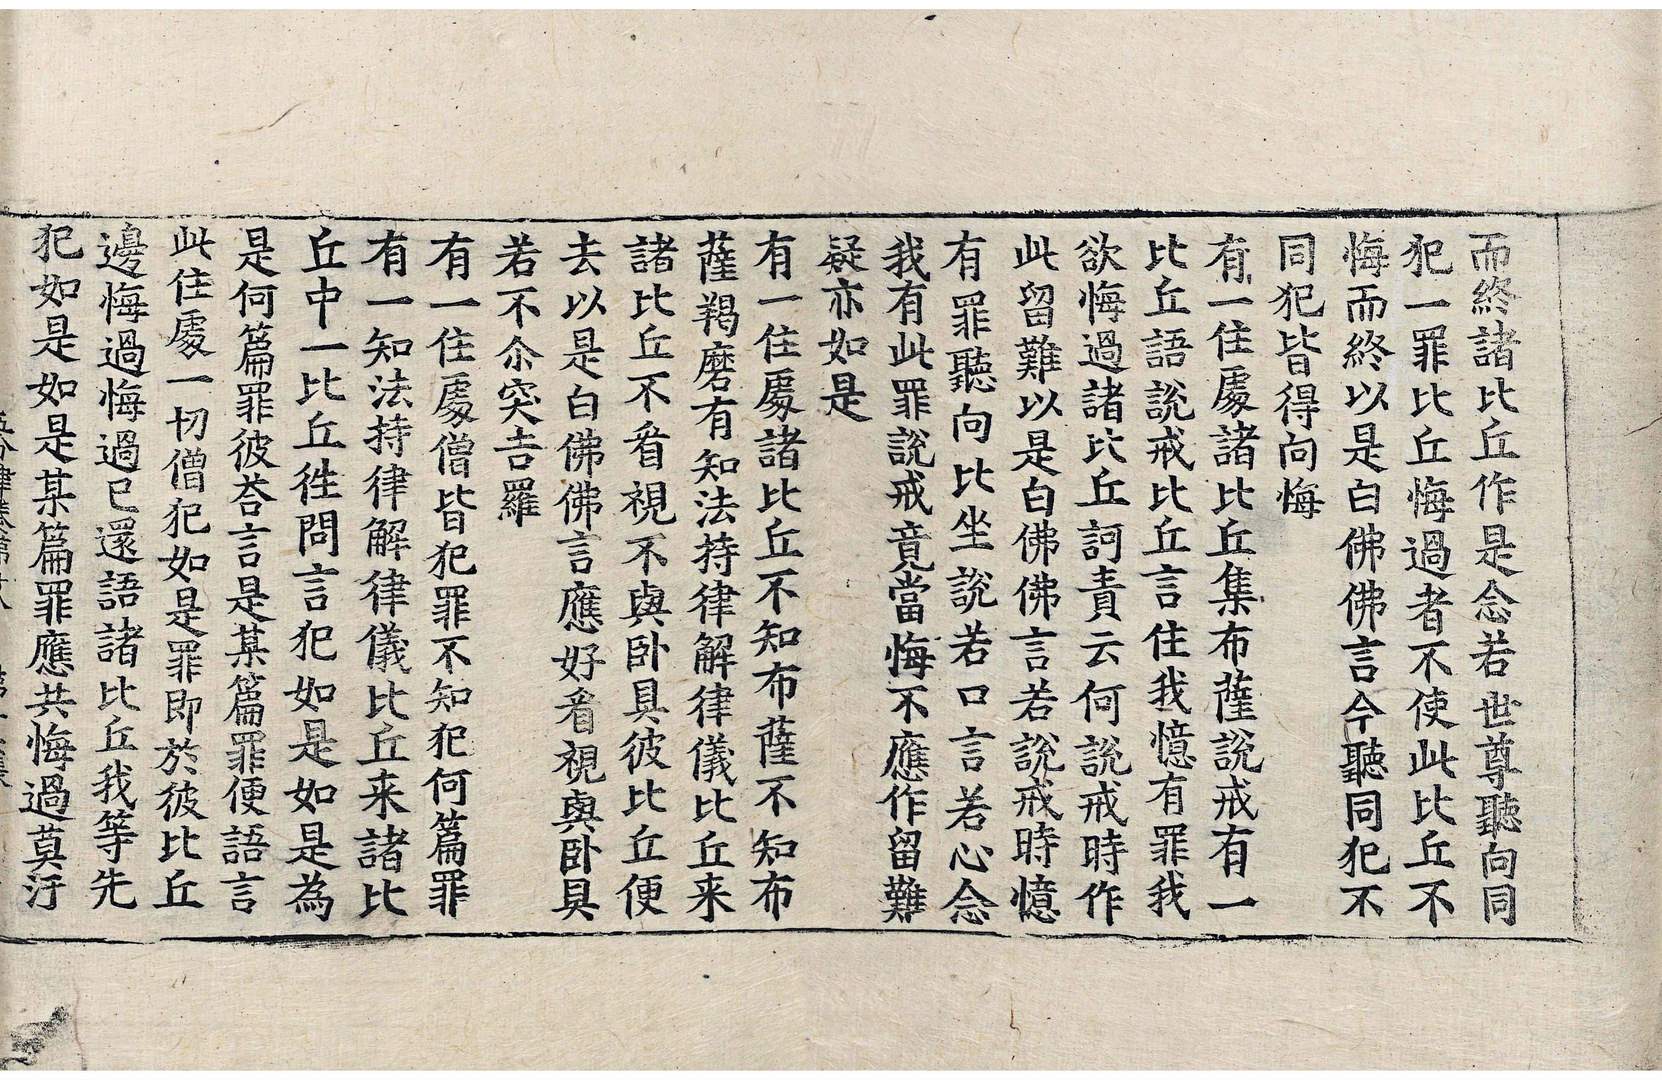 而終諸比丘作是念若世尊聽向同
犯一罪比丘悔過者不使此比丘不
悔而終以是白佛佛言今聽同犯不
同犯皆得向悔
有一住處諸比丘集布薩說戒有一
比丘語說戒比丘言住我憶有罪我
欲悔過諸比丘訶責云何說戒時作
此留難以是白佛佛言若說戒時憶
有罪聽向比坐說若口言若心念
我有此罪說戒竟當悔不應作留難
疑亦如是
有一住處諸比丘不知布薩不知布
薩羯磨有知法持律解律儀比丘来
諸比丘不看視不與卧具彼比丘便
去以是白佛佛言應好看視與卧具
若不尒突吉羅
有一住處僧皆犯罪不知犯何篇罪
有一知法持律解律儀比丘来諸比
丘中一比丘徃問言犯如是如是為
是何篇罪彼荅言是某篇罪便語言
此住處一切僧犯如是罪即於彼比丘
邊悔過悔過已還語諸比丘我等先
犯如是如是某篇罪應共悔過莫汙